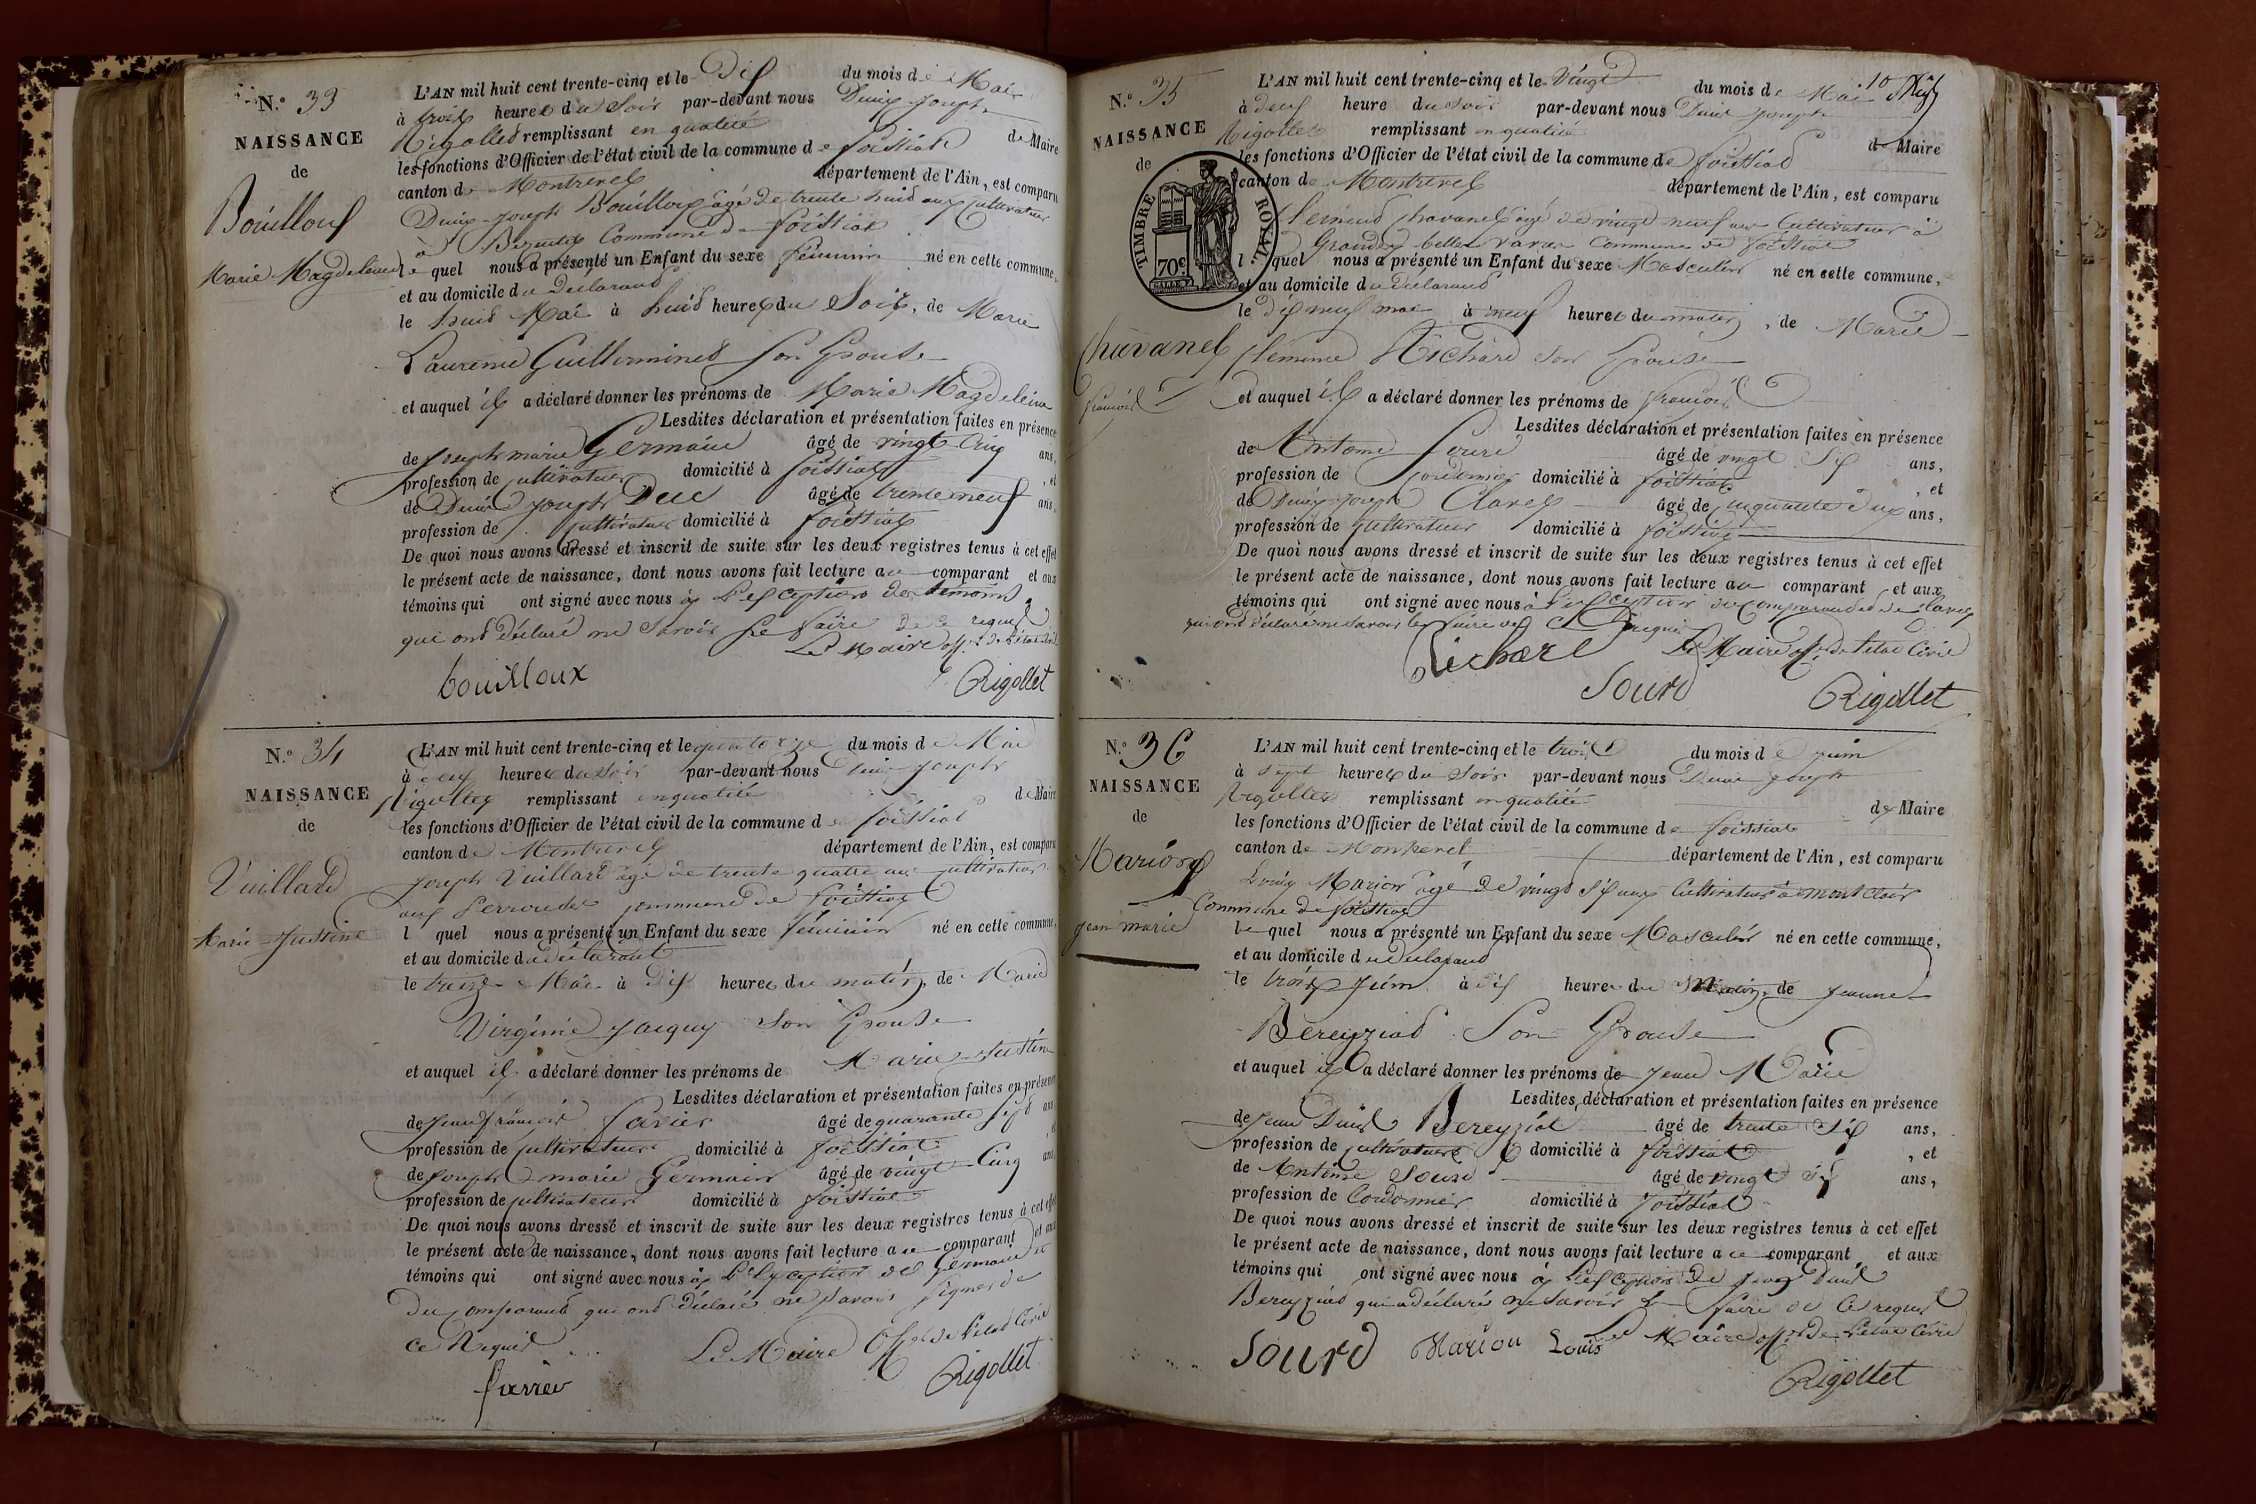 N.º 33
NAISSANCE
de
Bouilloux
Marie Magdeleine
L'AN mil huit cent trente-cinq et le Dix du mois de Mai
à trois heures du Soir par-devant nous Denis Joseph
Rigollet remplissant en qualité de Maire
les fonctions d'Officier de l'état civil de la commune de foissiat
canton de Montrevel département de l'Ain, est comparu
Denis Joseph Bouilloux âgé de trente huit ans cultivateur
à Commune de foissiat
le quel nous a présenté un Enfant du sexe féminin né en cette commune,
et au domicile du déclarant
le huit Mai à huit heures du Soir, de Marie
Laurence Guillerminet Son Epouse
et auquel il a déclaré donner les prénoms de Marie Magdeleine
Lesdites déclaration et présentation faites en présence
de Joseph marie Germain âgé de vingt Cinq ans,
profession de cultivateur domicilié à foissiat, et
de Denis Joseph Duc âgé de trente neuf ans,
profession de cultivateur domicilié à foissiat
De quoi nous avons dressé et inscrit de suite sur les deux registres tenus à cet effet
le présent acte de naissance, dont nous avons fait lecture au comparant et aux
témoins qui ont signé avec nous à L'exception des témoins
qui ont déclaré ne Savoir Le faire de ce requis
Le Maire off. de l'état civil
bouilloux
Rigollet
N.º 34
NAISSANCE
de
Vuillard
Marie Justine
L'AN mil huit cent trente-cinq et le quatorze du mois de Mai
à deux heures du Soir par-devant nous Denis Joseph
Rigollet remplissant en qualité de Maire
les fonctions d'Officier de l'état civil de la commune de foissiat
canton de Montrevel département de l'Ain, est comparu
Joseph Vuillard âgé de trente quatre ans cultivateur
aux Perroudes commune de foissiat
l quel nous a présenté un Enfant du sexe féminin né en cette commune,
et au domicile du déclarant
le treize Mai à Dix heures du matin, de Marie
Virginie Jacquy Son Epouse
et auquel il a déclaré donner les prénoms de Marie Justine
Lesdites déclaration et présentation faites en présence
de Jean françois farier âgé de quarante sept ans
profession de cultivateur domicilié à foissiat
de Joseph marie Germain âgé de vingt Cinq ans
profession de cultivateur domicilié à foissiat
De quoi nous avons dressé et inscrit de suite sur les deux registres tenus à cet effet
le présent acte de naissance, dont nous avons fait lecture au comparant et aux
témoins qui ont signé avec nous à L'exception de Germain et
Du comparant qui ont déclaré ne Savoir Signer de
ce Requis Le Maire Off. de l'état Civil
farier
Rigollet
10
N.º 35
NAISSANCE
de
TIMBRE ROYAL
70c
Chavanel
françois
L'AN mil huit cent trente-cinq et le Vingt du mois de Mai
à deux heure du soir par-devant nous Denis Joseph
Rigollet remplissant en qualité de Maire
les fonctions d'Officier de l'état civil de la commune de foissiat
canton de Montrevel département de l'Ain, est comparu
Chavanel âgé de vingt neuf ans Cultivateur à
Grandes belles vavres Commune de foissiat
l quel nous a présenté un Enfant du sexe Masculin né en cette commune,
et au domicile du déclarant
le dix neuf mai à neuf heures du matin, de Marie
Clémence Richard Son Epouse
et auquel il a déclaré donner les prénoms de françois
Lesdites déclaration et présentation faites en présence
de Antoine Sourd âgé de vingt Six ans,
profession de Cordonnier domicilié à foissiat, et
de Denis Joseph Clavel âgé de cinquante deux ans,
profession de cultivateur domicilié à foissiat
De quoi nous avons dressé et inscrit de suite sur les deux registres tenus à cet effet
le présent acte de naissance, dont nous avons fait lecture au comparant et aux
témoins qui ont signé avec nous à L'exception du comparant et de Clavel
qui ont déclaré ne Savoir le faire de ce requis
Le Maire off. de l'état Civil
Richard
Sourd
Rigollet
N.º 36
NAISSANCE
de
Marion
Jean marie
L'AN mil huit cent trente-cinq et le trois du mois de Juin
à sept heures du Soir par-devant nous Denis Joseph
Rigollet remplissant en qualité de Maire
les fonctions d'Officier de l'état civil de la commune de foissiat
canton de Montrevel département de l'Ain, est comparu
Louis Marion âgé de vingt Six ans Cultivateur à mont Clair
Commune de foissiat
Le quel nous a présenté un Enfant du sexe Masculin né en cette commune,
et au domicile du déclarant
le trois Juin à dix heures du Matin, de Jeanne
Bereyziat Son Epouse
et auquel il a déclaré donner les prénoms de Jean Marie
Lesdites déclaration et présentation faites en présence
de Jean Denis Bereyziat âgé de trente Six ans,
profession de cultivateur domicilié à foissiat, et
de Antoine Sourd âgé de vingt Six ans,
profession de Cordonnier domicilié à foissiat
De quoi nous avons dressé et inscrit de suite sur les deux registres tenus à cet effet
le présent acte de naissance, dont nous avons fait lecture au comparant et aux
témoins qui ont signé avec nous à L'exception de Jean Denis
Bereyziat qui a déclaré ne Savoir Le faire de Ce requis
Le Maire off. de l'état Civil
Sourd Marion Louis
Rigollet